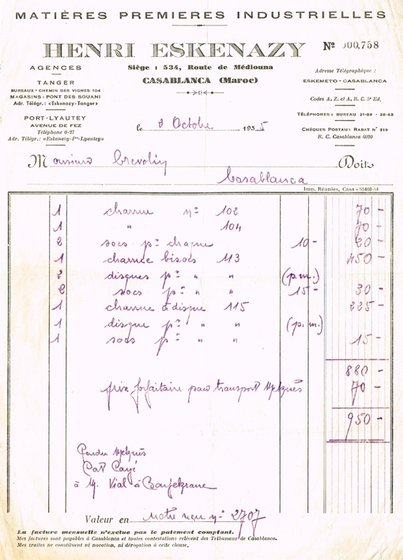 MATIÈRES PREMIERES INDUSTRIELLES
HENRI ESKENAZY
Nº 000,758
AGENCES
TANGER
BUREAUX - CHEMIN DES VIGNES 104
MAGASINS: PONT DES SOUANI
Adr. Télégr.: «Eskenazy-Tanger»
PORT-LYAUTEY
AVENUE DE FEZ
Téléphone 0-27
Adr. Télégr.: «Eskenazy-Pt-Lyautey»
Siège : 534, Route de Médiouna
CASABLANCA (Maroc)
Adresse Télégraphique :
ESKEMETO - CASABLANCA
Codes A. Z. et A. B. C. 5e Ed.
TÉLÉPHONES : BUREAU
CHÈQUES POSTAUX: RABAT Nº 219
R. C. Casablanca
le 3 Octobre 1935
Monsieur Doit:
Casablanca
Imp. Réunies, Casa
1 charrue nº 102 70 -
1 " 104 70 -
2 socs pr charrue 10 - 20 -
1 charrue bisocs 113 450 -
2 disques pr " " (p.m.)
2 socs pr " " 15 - 30 -
1 charrue à disque 115 225 -
1 disque pr " " (p.m.)
1 socs " " 15 -
880 -
prix forfaitaire pour transport 70 -
950 -
à M. Vial à
Valeur en notre reçu nº 2707
La facture mensuelle n'exclue pas le paiement comptant.
Mes factures sont payables à Casablanca et toutes contestations relèvent des Tribunaux de Casablanca.
Mes traites ne constituent ni novation, ni dérogation à cette clause.